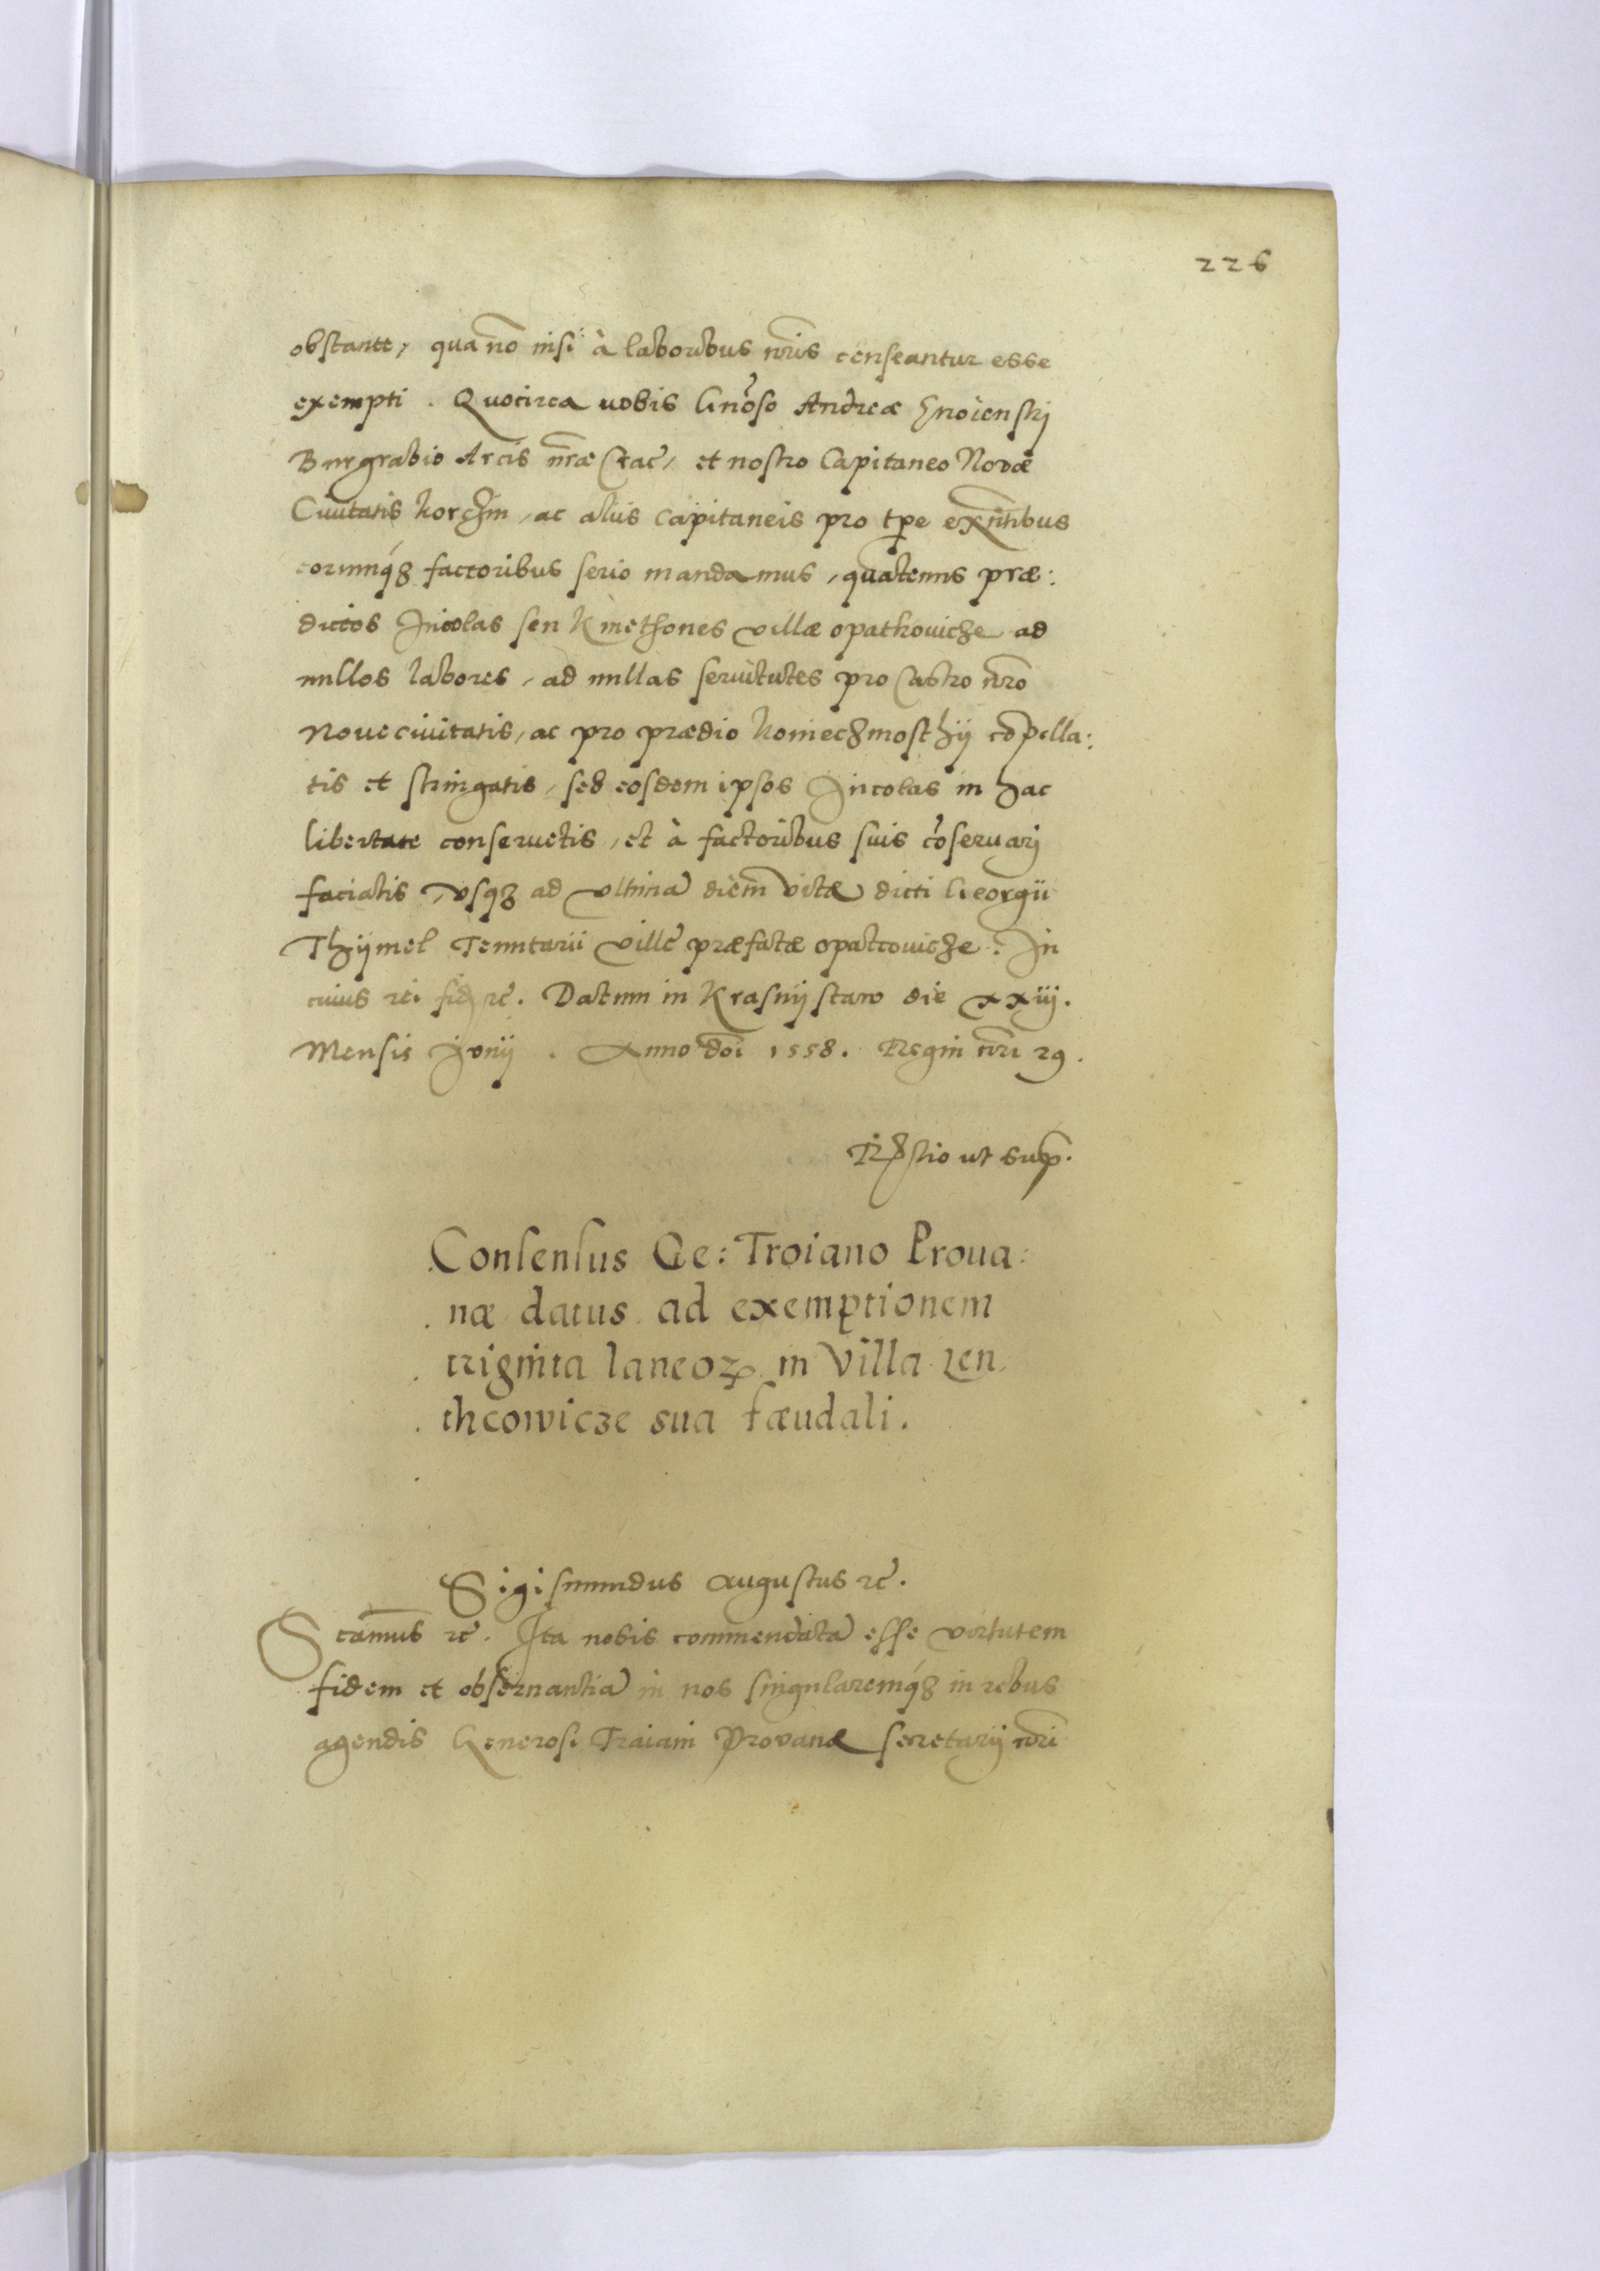 226
obstante, qua nō nisi à laboribus nr̄is censeantur esse
exempti. Quocirca vobis Gnōso Andreæ Gnoienskj
Burgrabio Arcis nr̄æ Crac̄, et nostro Capitaneo Novæ
Civitatis Korczin, ac aliis capitaneis pro tp̄e exn̄tibus
eorumq́ꝫ factoribus serio mandamus, quatenus præ:
dictos Incolas seu Kmethones villæ opatkovicze ad
nullos labores, ad nullas servitutes pro Castro nr̄o
Nove civitatis, ac pro prædio Konieczmosthij cōpella:
tis et stringatis, sed eosdem ipsos Incolas in hac
libertate conservetis, et à factoribus suis cōservarj
faciatis, vsqꝫ ad vltimā diem vitæ dicti Georgii
Thijmel Tenutarii ville præfatæ opatcovicze. In
cuius rei fidꝫ ꝛc̄. Datum in Krasnijstaw die xxiij.
Mensis Junij. Anno dōi 1558. Regni nr̄i 29.
Rl̄stio ut sup̄.
Consensus Ge: Troiano Prova:
næ datus ad exemptionem
triginta laneoꝝ in Villa Zen
thcowicze sua fæudali.
Sigismundus Augustus ꝛc̄.
Scamus ꝛc̄. Ita nobis commendatā esse virtutem
fidem et observantiā in nos singularemq́ꝫ in rebus
agendis Generosi Traiani Provanæ secretarij nr̄i